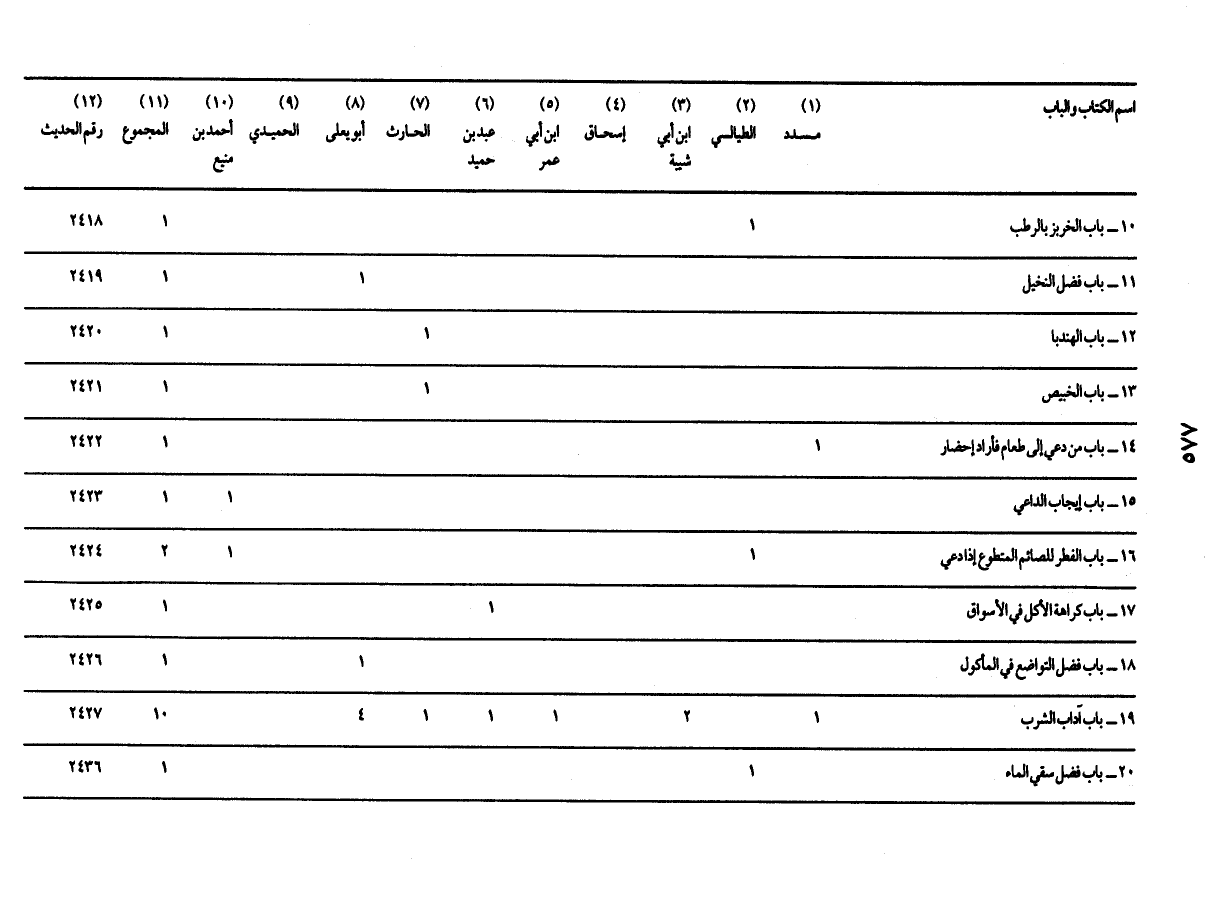 اسم الكتاب والباب (١) مسدد (٢) الطيالسي (٣) ابن أبي شيبة (٤) إسحاق (٥) ابن أبي عمر (٦) عبد بن حميد (٧) الحارث (٨) أبو يعلى (٩) الحميدي (١٠) أحمد بن منيع (١١) المجموع (١٢) رقم الحديث
١٠ ـ باب الخربز بالرطب ١ ١ ٢٤١٨
١١ ـ باب فضل النخيل ١ ١ ٢٤١٩
١٢ ـ باب الهندبا ١ ١ ٢٤٢٠
١٣ ـ باب الخبيص ١ ١ ٢٤٢١
١٤ ـ باب من دعي إلى طعام فأراد إحضار ١ ١ ٢٤٢٢
١٥ ـ باب إيجاب الداعي ١ ١ ٢٤٢٣
١٦ ـ باب الفطر للصائم المتطوع إذا دعي ١ ١ ٢ ٢٤٢٤
١٧ ـ باب كراهة الأكل في الأسواق ١ ١ ٢٤٢٥
١٨ ـ باب فضل التواضع في المأكول ١ ١ ٢٤٢٦
١٩ ـ باب آداب الشرب ١ ٢ ١ ١ ١ ٤ ١٠ ٢٤٢٧
٢٠ ـ باب فضل سقي الماء ١ ١ ٢٤٣٦
٥٧٧